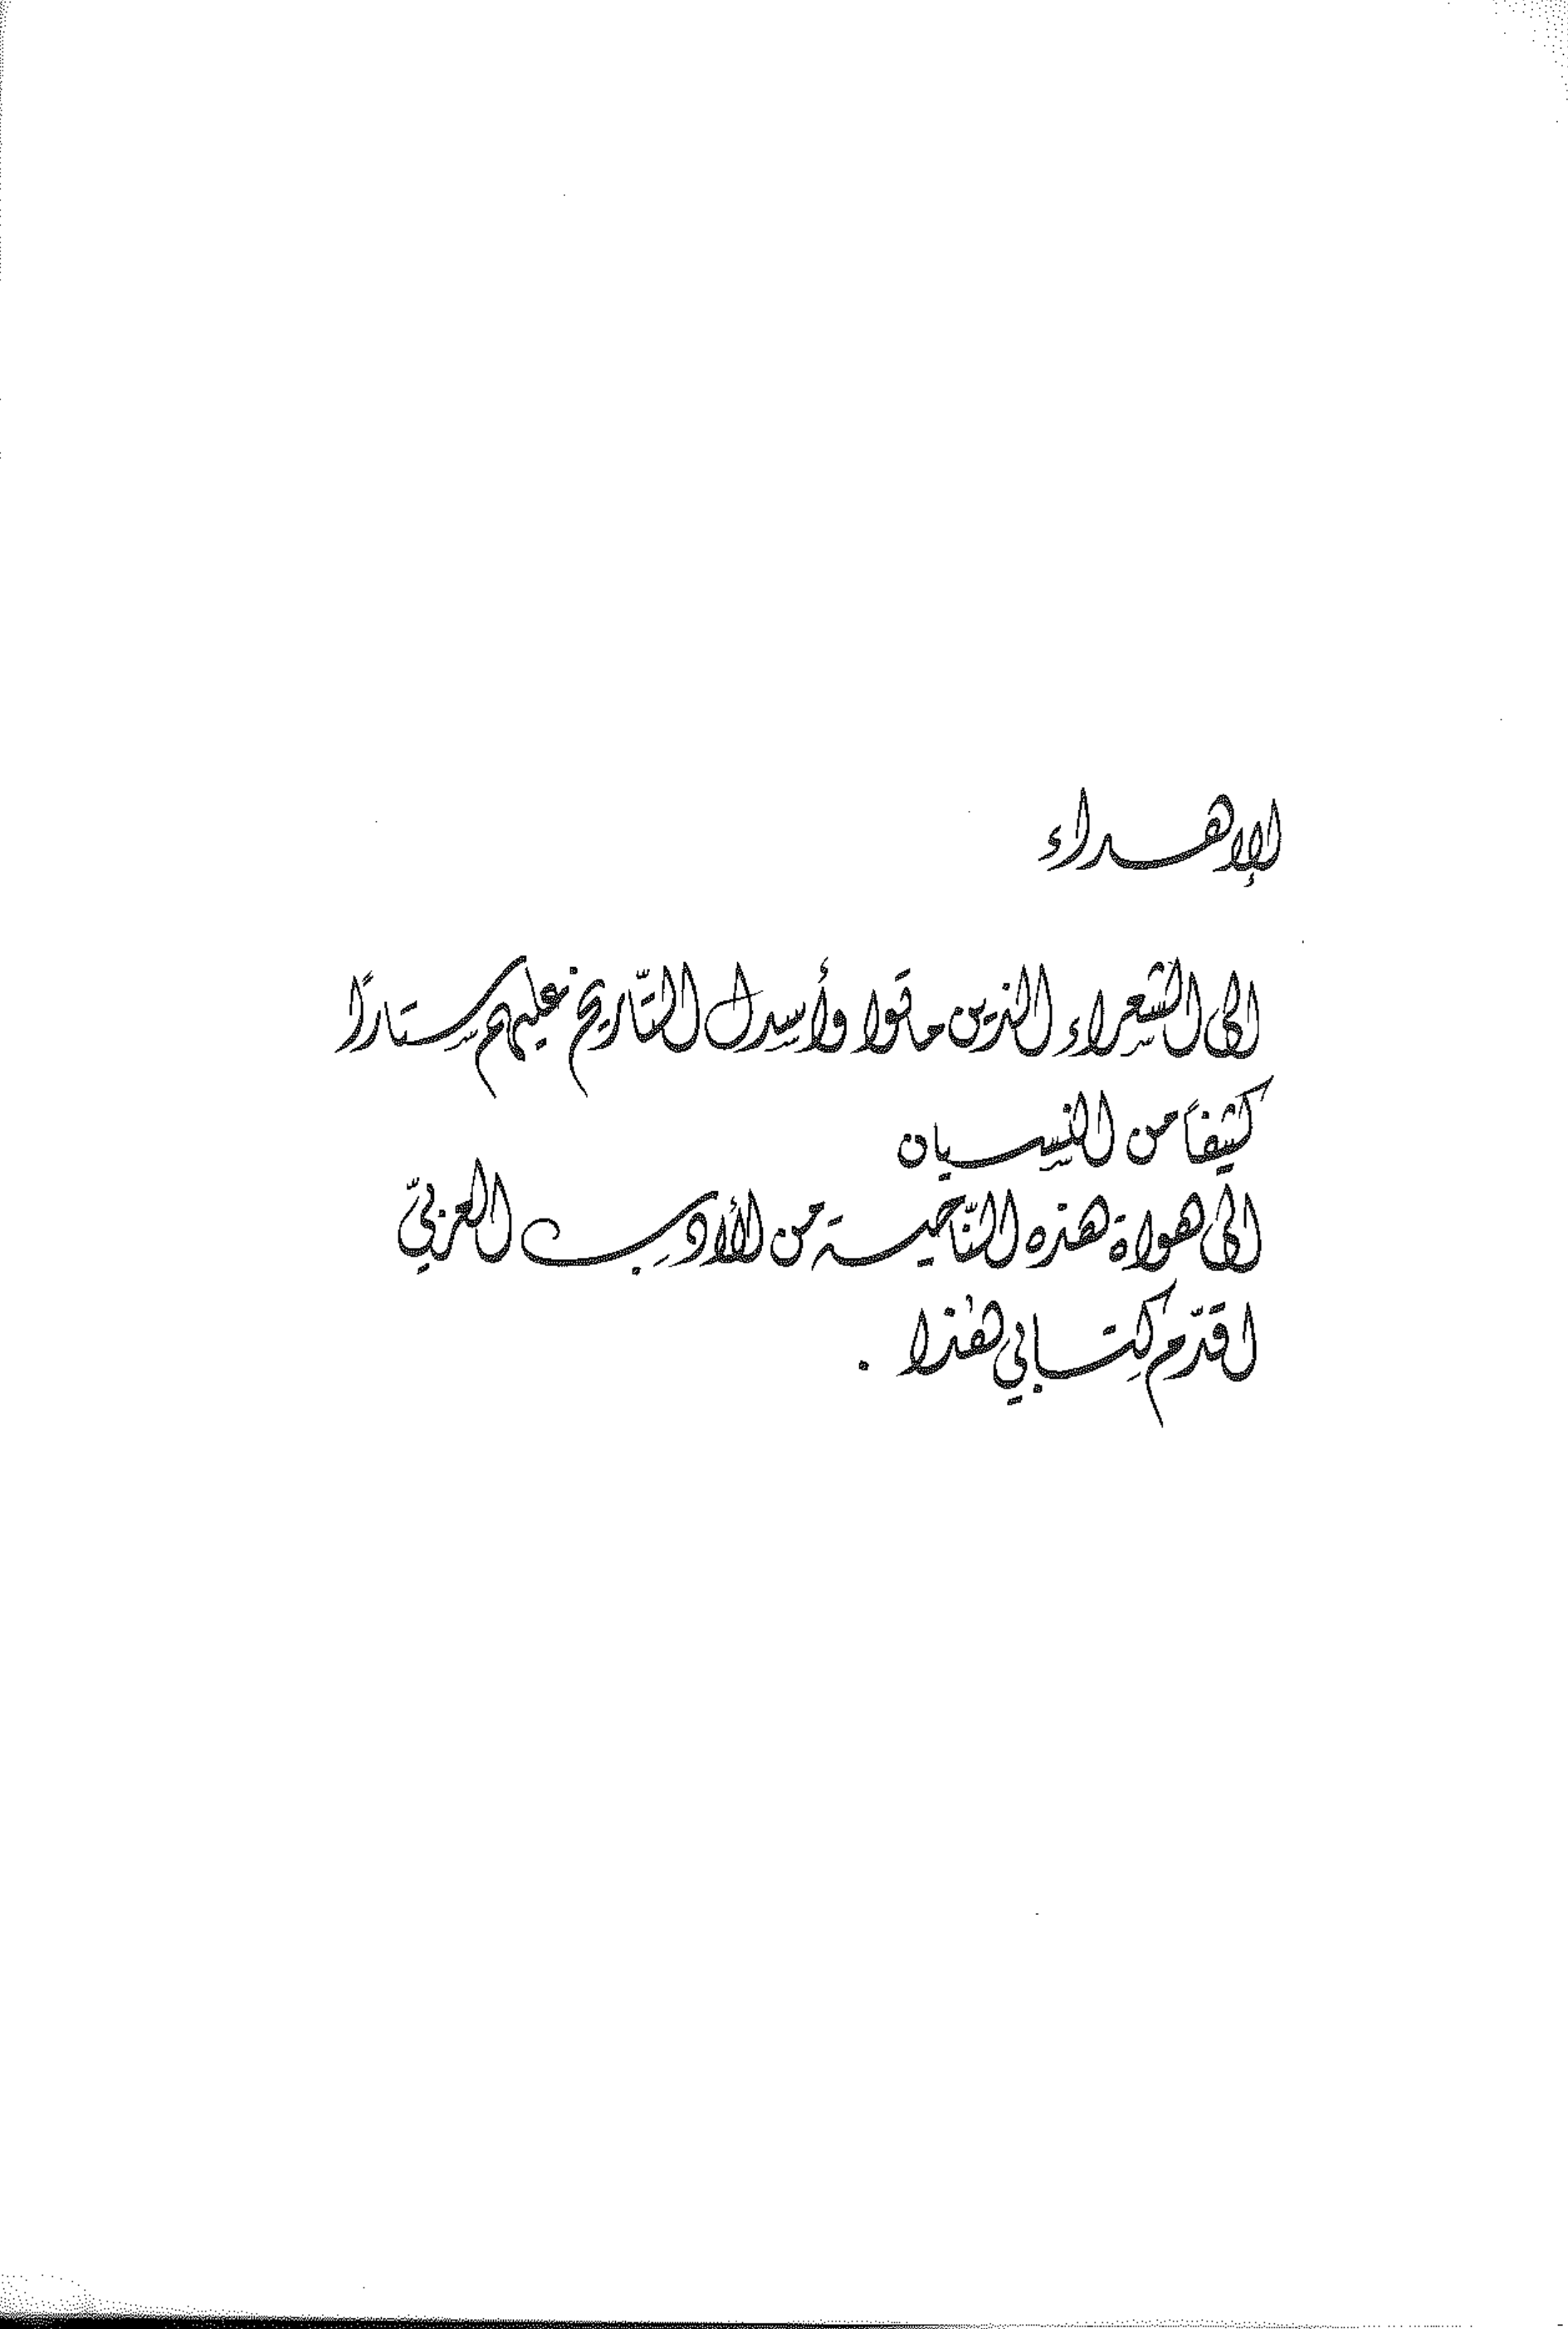 الإهداء
الى الشعراء الذين ماتوا وأسدل التّاريخ عليهم ستارًا
كثيفاً من النسيان
الى هواة هذه النّاحية من الأدب العربيّ
اقدّم كتابي هذا .